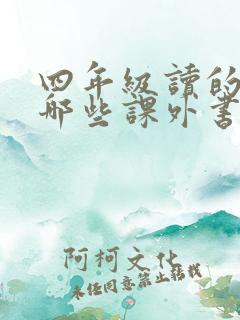 四年級讀的
哪些課外書
阿柯文化
未經同意禁止轉載